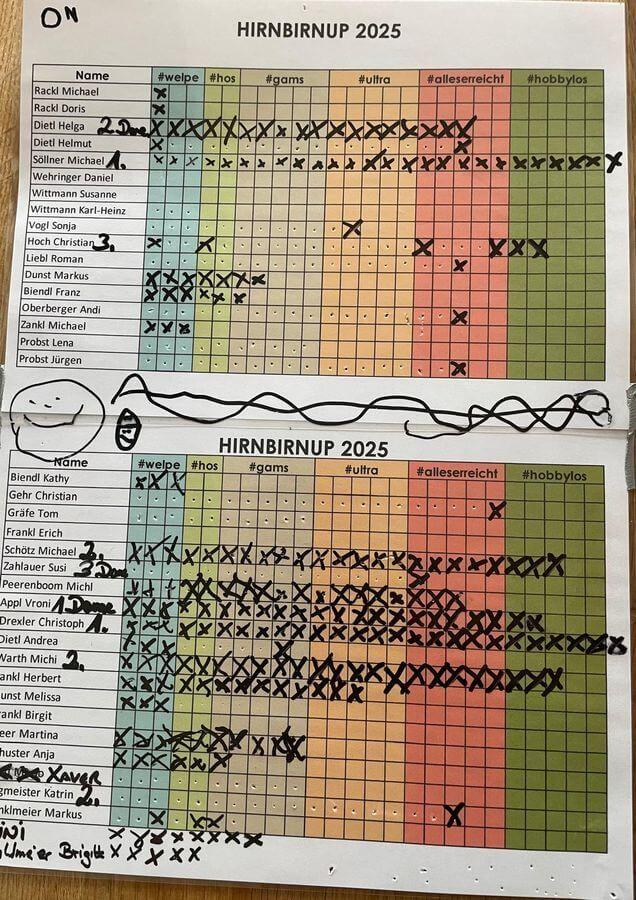 ON
HIRNBIRNUP 2025
Name #welpe #hos #gams #ultra #alleserreicht #hobbylos
Rackl Michael X
Rackl Doris X
Dietl Helga 2. Dame X X X X X X X X X X X X X X X X X X
Dietl Helmut X X
Söllner Michael 1. X X X X X X X X X X X X X X X X X X X X X X X X X X
Wehringer Daniel
Wittmann Susanne
Wittmann Karl-Heinz
Vogl Sonja X
Hoch Christian 3. X X X X X X
Liebl Roman X
Dunst Markus X X X X X X X
Biendl Franz X X X X X X
Oberberger Andi X
Zankl Michael X X X
Probst Lena
Probst Jürgen X
HIRNBIRNUP 2025
Name #welpe #hos #gams #ultra #alleserreicht #hobbylos
Biendl Kathy X X X
Gehr Christian
Gräfe Tom X
Frankl Erich
Schötz Michael 2. X X X X X X X X X X X X X X X X X X X X X X X X
Zahlauer Susi 3. Dame
Peerenboom Michl
Appl Vroni 1. Dame
Drexler Christoph 1.
Dietl Andrea
Warth Michi 2.
ankl Herbert
unst Melissa X X X
rankl Birgit
eer Martina
huster Anja X X X X X X
XAVER
gmeister Katrin 2.
nklmeier Markus X X X X
INI X X X X X X X X
lmeier Brigitte X X X X X